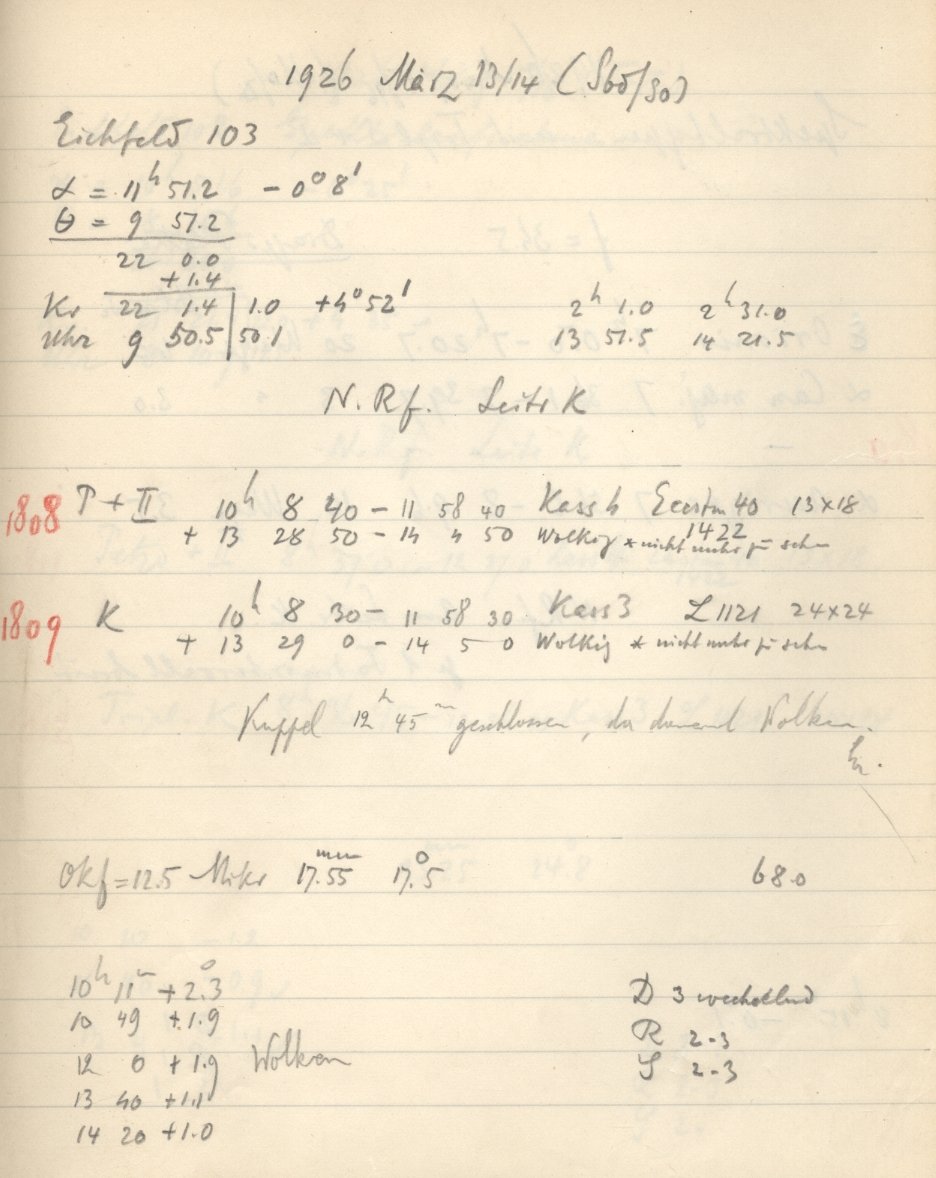 1926 März 13/14 (Sbd/So)
Eichfeld 103
α = 11h 51.2 - 0° 8'
θ = 9 57.2
22 0.0
+ 1.4
Kr 22 1.4 1.0 +4° 52' 2h 1.0 2h 31.0
Uhr 9 50.5 50.1 13 51.5 14 21.5
N. Rf. Leitr K
1808 P + II 10h 8 40 - 11 58 40 Kass 4 40 13×18
+ 13 28 50 - 14 4 50 Wolkig * nicht mehr zu sehen 1422
1809 K 10h 8 30 - 11 58 30 Kass 3 L 1121 24×24
+ 13 29 0 - 14 5 0 Wolkig * nicht mehr zu sehen
Kuppel 12h 45m geschlossen, da dauernd Wolken.
Okf = 12.5 Mikr 17.55 mm 17.°5 680
10h 11m + 2.°3
10 49 + 1.9
12 0 + 1.9 Wolken
13 40 + 1.1
14 20 + 1.0
D 3 wechselnd
R 2-3
S 2-3